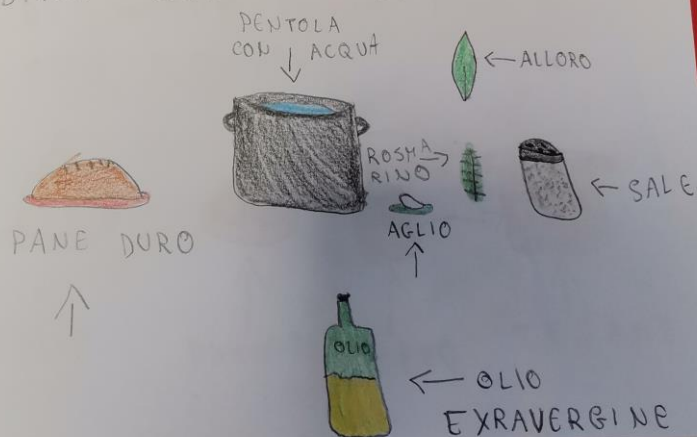 PENTOLA
CON ACQUA
ALLORO
ROSMA
RINO
SALE
AGLIO
PANE DURO
OLIO
OLIO
EXRAVERGINE